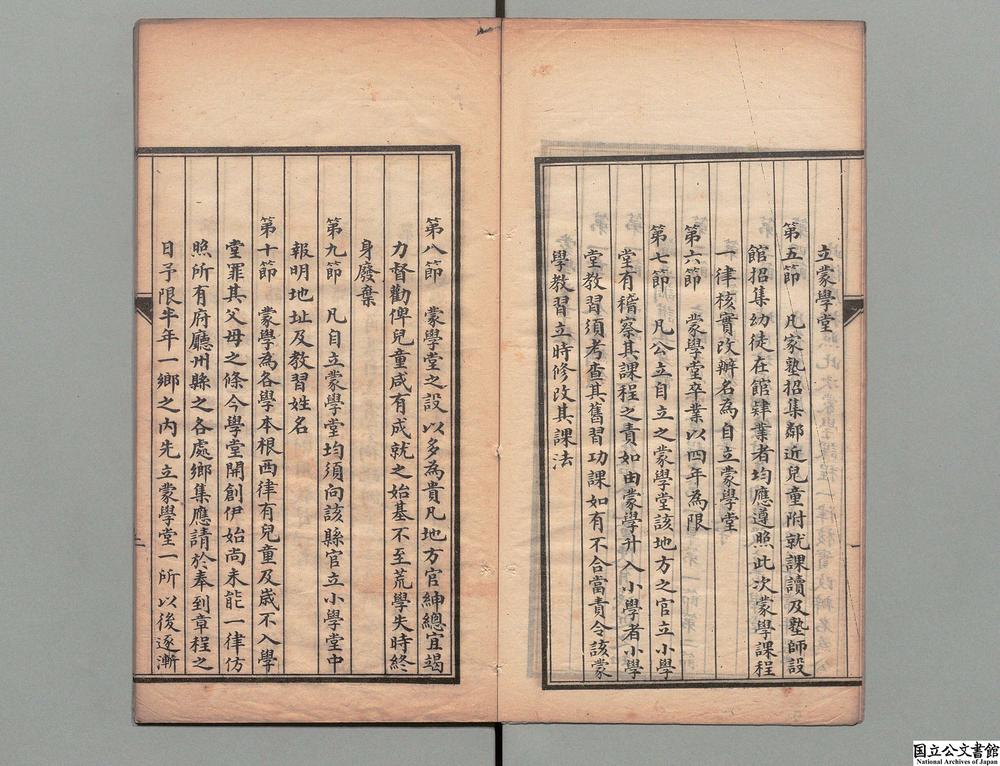 立蒙學堂
第五節　凡家塾招集鄰近兒童附就課讀及塾師設
館招集幼徒在館肄業者均應遵照此次蒙學課程
一律核實改辦名為自立蒙學堂
第六節　蒙學堂卒業以四年為限
第七節　凡公立自立之蒙學堂該地方之官立小學
堂有稽察其課程之責如由蒙學升入小學者小學
堂教習須考查其舊習功課如有不合當責令該蒙
學教習立時修改其課法
第八節　蒙學堂之設以多為貴凡地方官紳總宜竭
力督勸俾兒童咸有成就之始基不至荒學失時終
身廢棄
第九節　凡自立蒙學堂均須向該縣官立小學堂中
報明地址及教習姓名
第十節　蒙學為各學本根西律有兒童及歲不入學
堂罪其父母之條今學堂開創伊始尚未能一律仿
照所有府廳州縣之各處鄉集應請於奉到章程之
日予限半年一鄉之內先立蒙學堂一所以後逐漸
国立公文書館
National Archives of Japan